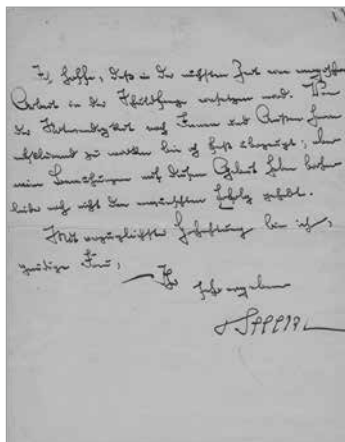 Ich hoffe, daß in der nächsten Zeit eine
Arbeit in der Schuldfrage einsetzen wird. Von
der Notwendigkeit nach Innen und Außen hin
zu wirken bin ich fest überzeugt; aber
meine Bemühungen auf diesem Gebiet haben bisher
leider noch nicht den erwünschten Erfolg gehabt.
Mit vorzüglichster Hochachtung bin ich,
gnädige Frau,
Ihr
sehr ergebener